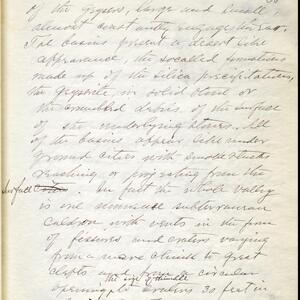 of the geysers, large and small,
almost constantly
The basins present a desert like
appearance, the so called formations
made up of the silica precipitations,
the geyserite in solid sheet or
the crumbled debris of the surface
of the underlying stones. All
of the basins appear like under
ground cities with smoke stacks
or projecting from the
surface. In fact the whole valley
is one immense subterranean
caldron with vents in the form
of fissures and craters varying
from a mere chink to great
clefts and from a circular
the size of thimble
opening to craters 30 feet in